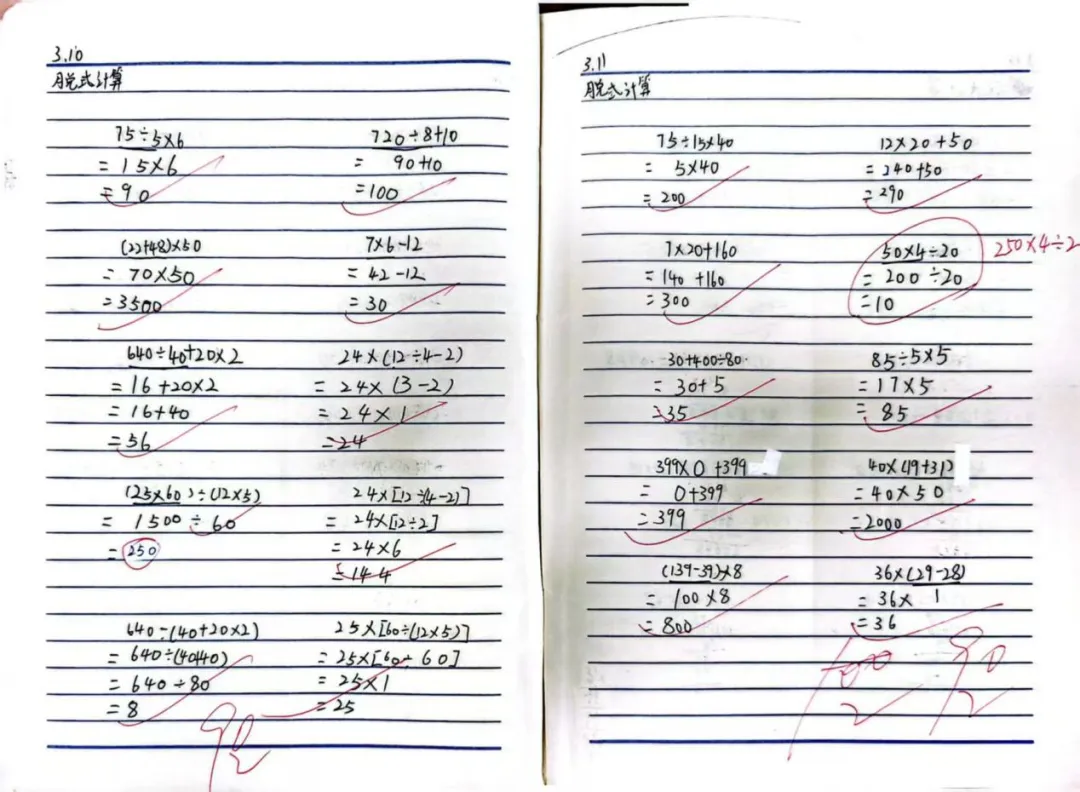 3.10
脱式计算
75÷5×6
=15×6
=90
720÷8+10
=90+10
=100
(22+48)×50
=70×50
=3500
7×6-12
=42-12
=30
640÷40+20×2
=16+20×2
=16+40
=56
24×(12÷4-2)
=24×(3-2)
=24×1
=24
(25×60)÷(12×5)
=1500÷60
=250
24×[12÷(4-2)]
=24×[12÷2]
=24×6
=144
640÷(40+20×2)
=640÷(40+40)
=640÷80
=8
25×[60÷(12×5)]
=25×[60÷60]
=25×1
=25
90
2
3.11
脱式计算
75÷15×40
=5×40
=200
12×20+50
=240+50
=290
7×20+160
=140+160
=300
50×4÷20
=200÷20
=10
250×4÷2
30+400÷80
=30+5
=35
85÷5×5
=17×5
=85
399×0+399
=0+399
=399
40×(19+31)
=40×50
=2000
(139-39)×8
=100×8
=800
36×(29-28)
=36×1
=36
100
2
90
2